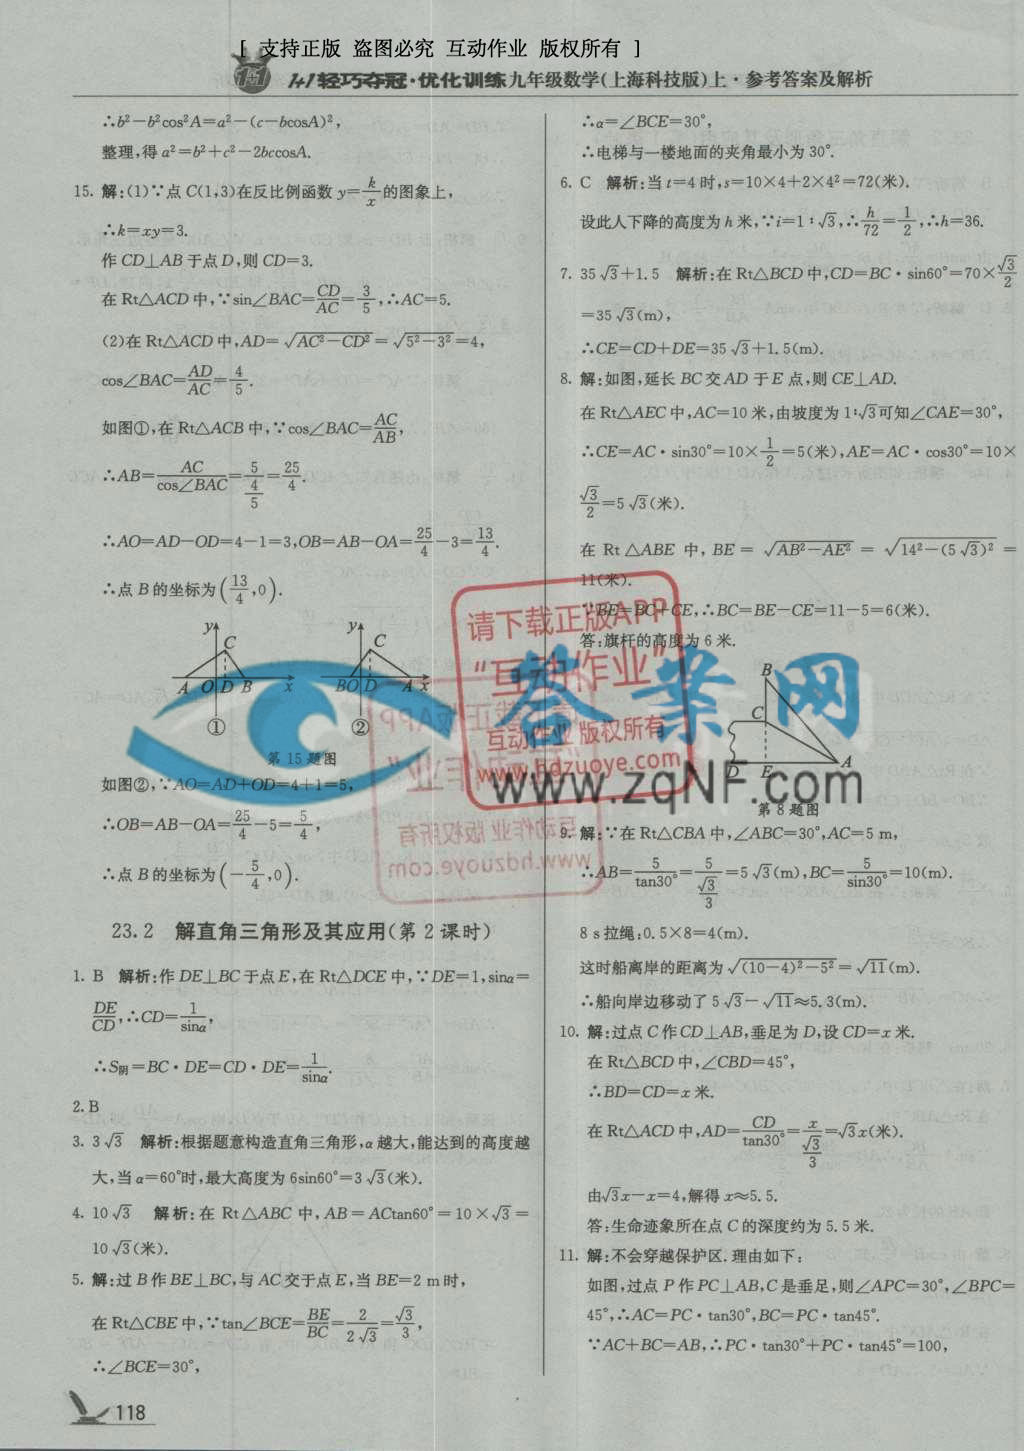 [ 支持正版 盗图必究 互动作业 版权所有 ]
1+1轻巧夺冠·优化训练九年级数学(上海科技版)上·参考答案及解析
∴b²-b²cos²A=a²-(c-bcosA)²,
整理,得 a²=b²+c²-2bccosA.
15. 解:(1)∵点 C(1,3)在反比例函数 y=k/x的图象上,
∴k=xy=3.
作 CD⊥AB 于点 D,则 CD=3.
在 Rt△ACD 中,∵sin∠BAC=CD/AC=3/5,∴AC=5.
(2)在 Rt△ACD 中,AD=√(AC²-CD²)=√(5²-3²)=4,
cos∠BAC=AD/AC=4/5.
如图①,在 Rt△ACB 中,∵cos∠BAC=AC/AB,
∴AB=AC/cos∠BAC=5/(4/5)=25/4.
∴AO=AD-OD=4-1=3,OB=AB-OA=25/4-3=13/4.
∴点 B 的坐标为(13/4,0).
y C A O D B x ①
y C B O D A x ②
第 15 题图
如图②,∵AO=AD+OD=4+1=5,
∴OB=AB-OA=25/4-5=5/4,
∴点 B 的坐标为(-5/4,0).
23.2 解直角三角形及其应用(第 2 课时)
1. B 解析:作 DE⊥BC 于点 E,在 Rt△DCE 中,∵DE=1,sinα=
DE/CD,∴CD=1/sinα,
∴S阴=BC·DE=CD·DE=1/sinα.
2. B
3. 3√3 解析:根据题意构造直角三角形,α越大,能达到的高度越
大,当 α=60°时,最大高度为 6sin60°=3√3(米).
4. 10√3 解析:在 Rt△ABC 中,AB=ACtan60°=10×√3=
10√3(米).
5. 解:过 B 作 BE⊥BC,与 AC 交于点 E,当 BE=2 m时,
在 Rt△CBE 中,∵tan∠BCE=BE/BC=2/(2√3)=√3/3,
∴∠BCE=30°,
118
∴α=∠BCE=30°,
∴电梯与一楼地面的夹角最小为 30°.
6. C 解析:当 t=4 时,s=10×4+2×4²=72(米).
设此人下降的高度为 h 米,∵i=1∶√3,∴h/72=1/2,∴h=36.
7. 35√3+1.5 解析:在 Rt△BCD 中,CD=BC·sin60°=70×√3/2
=35√3(m),
∴CE=CD+DE=35√3+1.5(m).
8. 解:如图,延长 BC 交 AD 于 E 点,则 CE⊥AD.
在 Rt△AEC 中,AC=10 米,由坡度为 1∶√3可知∠CAE=30°,
∴CE=AC·sin30°=10×1/2=5(米),AE=AC·cos30°=10×
√3/2=5√3(米).
在 Rt△ABE 中,BE=√(AB²-AE²)=√(14²-(5√3)²)=
11(米).
∵BE=BC+CE,∴BC=BE-CE=11-5=6(米).
答:旗杆的高度为 6 米.
B C D E A
第 8 题图
9. 解:∵在 Rt△CBA 中,∠ABC=30°,AC=5 m,
∴AB=5/tan30°=5/(√3/3)=5√3(m),BC=5/sin30°=10(m).
8 s拉绳:0.5×8=4(m).
这时船离岸的距离为√((10-4)²-5²)=√11(m).
∴船向岸边移动了 5√3-√11≈5.3(m).
10. 解:过点 C 作 CD⊥AB,垂足为 D,设 CD=x 米.
在 Rt△BCD 中,∠CBD=45°,
∴BD=CD=x 米.
在 Rt△ACD 中,AD=CD/tan30°=x/(√3/3)=√3x(米).
由√3x-x=4,解得 x≈5.5.
答:生命迹象所在点 C 的深度约为 5.5 米.
11. 解:不会穿越保护区.理由如下:
如图,过点 P 作 PC⊥AB,C 是垂足,则∠APC=30°,∠BPC=
45°,∴AC=PC·tan30°,BC=PC·tan45°.
∵AC+BC=AB,∴PC·tan30°+PC·tan45°=100,
请下载正版APP
“互动作业”
互动作业 版权所有
www.hdzuoye.com
業网
www.zqNF.com